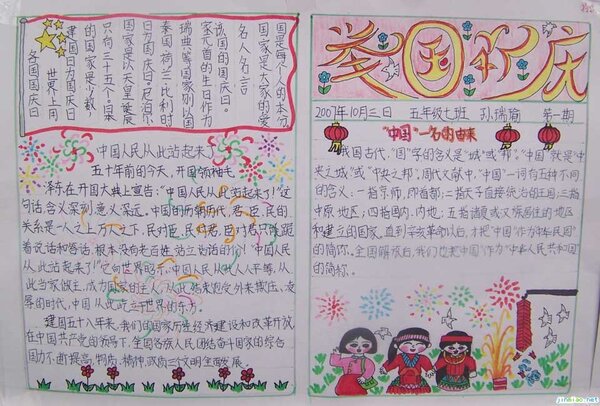 各国国庆日
世界上用
建国日为国庆日
的国家是少数,
只有三十五个。某
国家是以天皇诞辰
日为国庆日。尼泊尔
泰国荷兰比利时
等国家则以国
家元首的生日作为
该国的国庆日。
名人名言
国家是大家的爱
国是每个人的本分
中国人民从此站起来了
五十年前的今天,开国领袖毛
泽东在开国大典上宣告:"中国人民从此站起来了!"这
句话含义深刻,意义深远。中国的历朝历代,君、臣、民的
关系是一人之上万人之下,民对臣,民对君,臣对君只有跪
着说话和答话,根本没有老百姓站立说话的份!"中国人民
从此站起来了!"它向世界昭示,中国人民从此人人平等,从
此当家做主,成为国家的主人,从此结束饱受外来损压、凌
辱的时代,中国从此屹立于世界的东方。
建国五十八年来,我们的国家历经经济建设和改革开放
在中国共产党的领导下,全国各族人民团结奋斗国家的综合
国力不断提高,物质、精神、政治三个文明全面发展。
举国欢庆
2007年10月三日 五年级七班 孙瑞瑜 第一期
"中国"一名的由来
我国古代,"国"字的含义是"城"或"邦"。"中国"就是"中
央之城"或"中央之邦"。周代文献中,"中国"一词有五种不同
的含义:一指京师,即首都;二指天子直接统治的王国;三指
中原地区;四指国内、内地;五指诸夏或汉族居住的地区
和建立的国家。直到辛亥革命以后,才把"中国"作为"中华民国"
的简称。全国解放后,我们也把"中国"作为"中华人民共和国"
的简称。